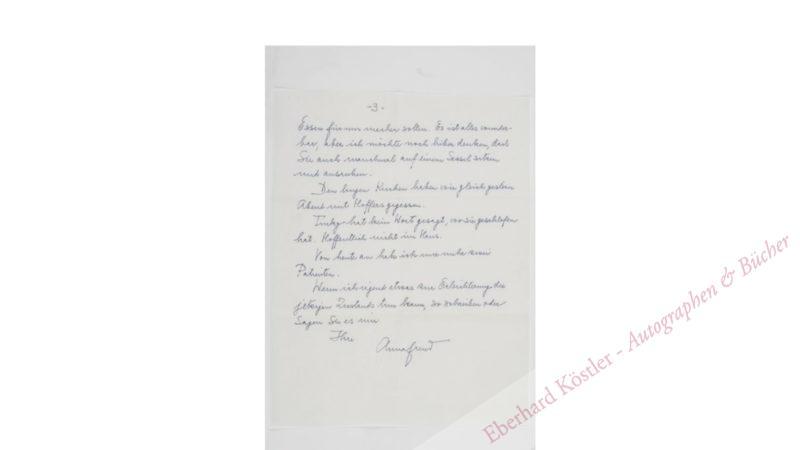 -3-
Essen für uns machen sollen. Es ist alles wunder-
bar, aber ich möchte noch lieber denken, daß
Sie auch manchmal auf einem Sessel sitzen
und ausruhen.
Den Kuchen haben wir gleich gestern
Abend mit Hoffers gegessen.
hat kein Wort gesagt, wo sie geschlafen
hat. Hoffentlich nicht im Haus.
Von heute an habe ich nur mehr zwei
Patienten.
Wenn ich irgend etwas zur Erleichterung des
jetzigen Zustands tun kann, so schreiben oder
sagen Sie es mir.
Ihre
Anna Freud
Eberhard Köstler - Autographen & Bücher